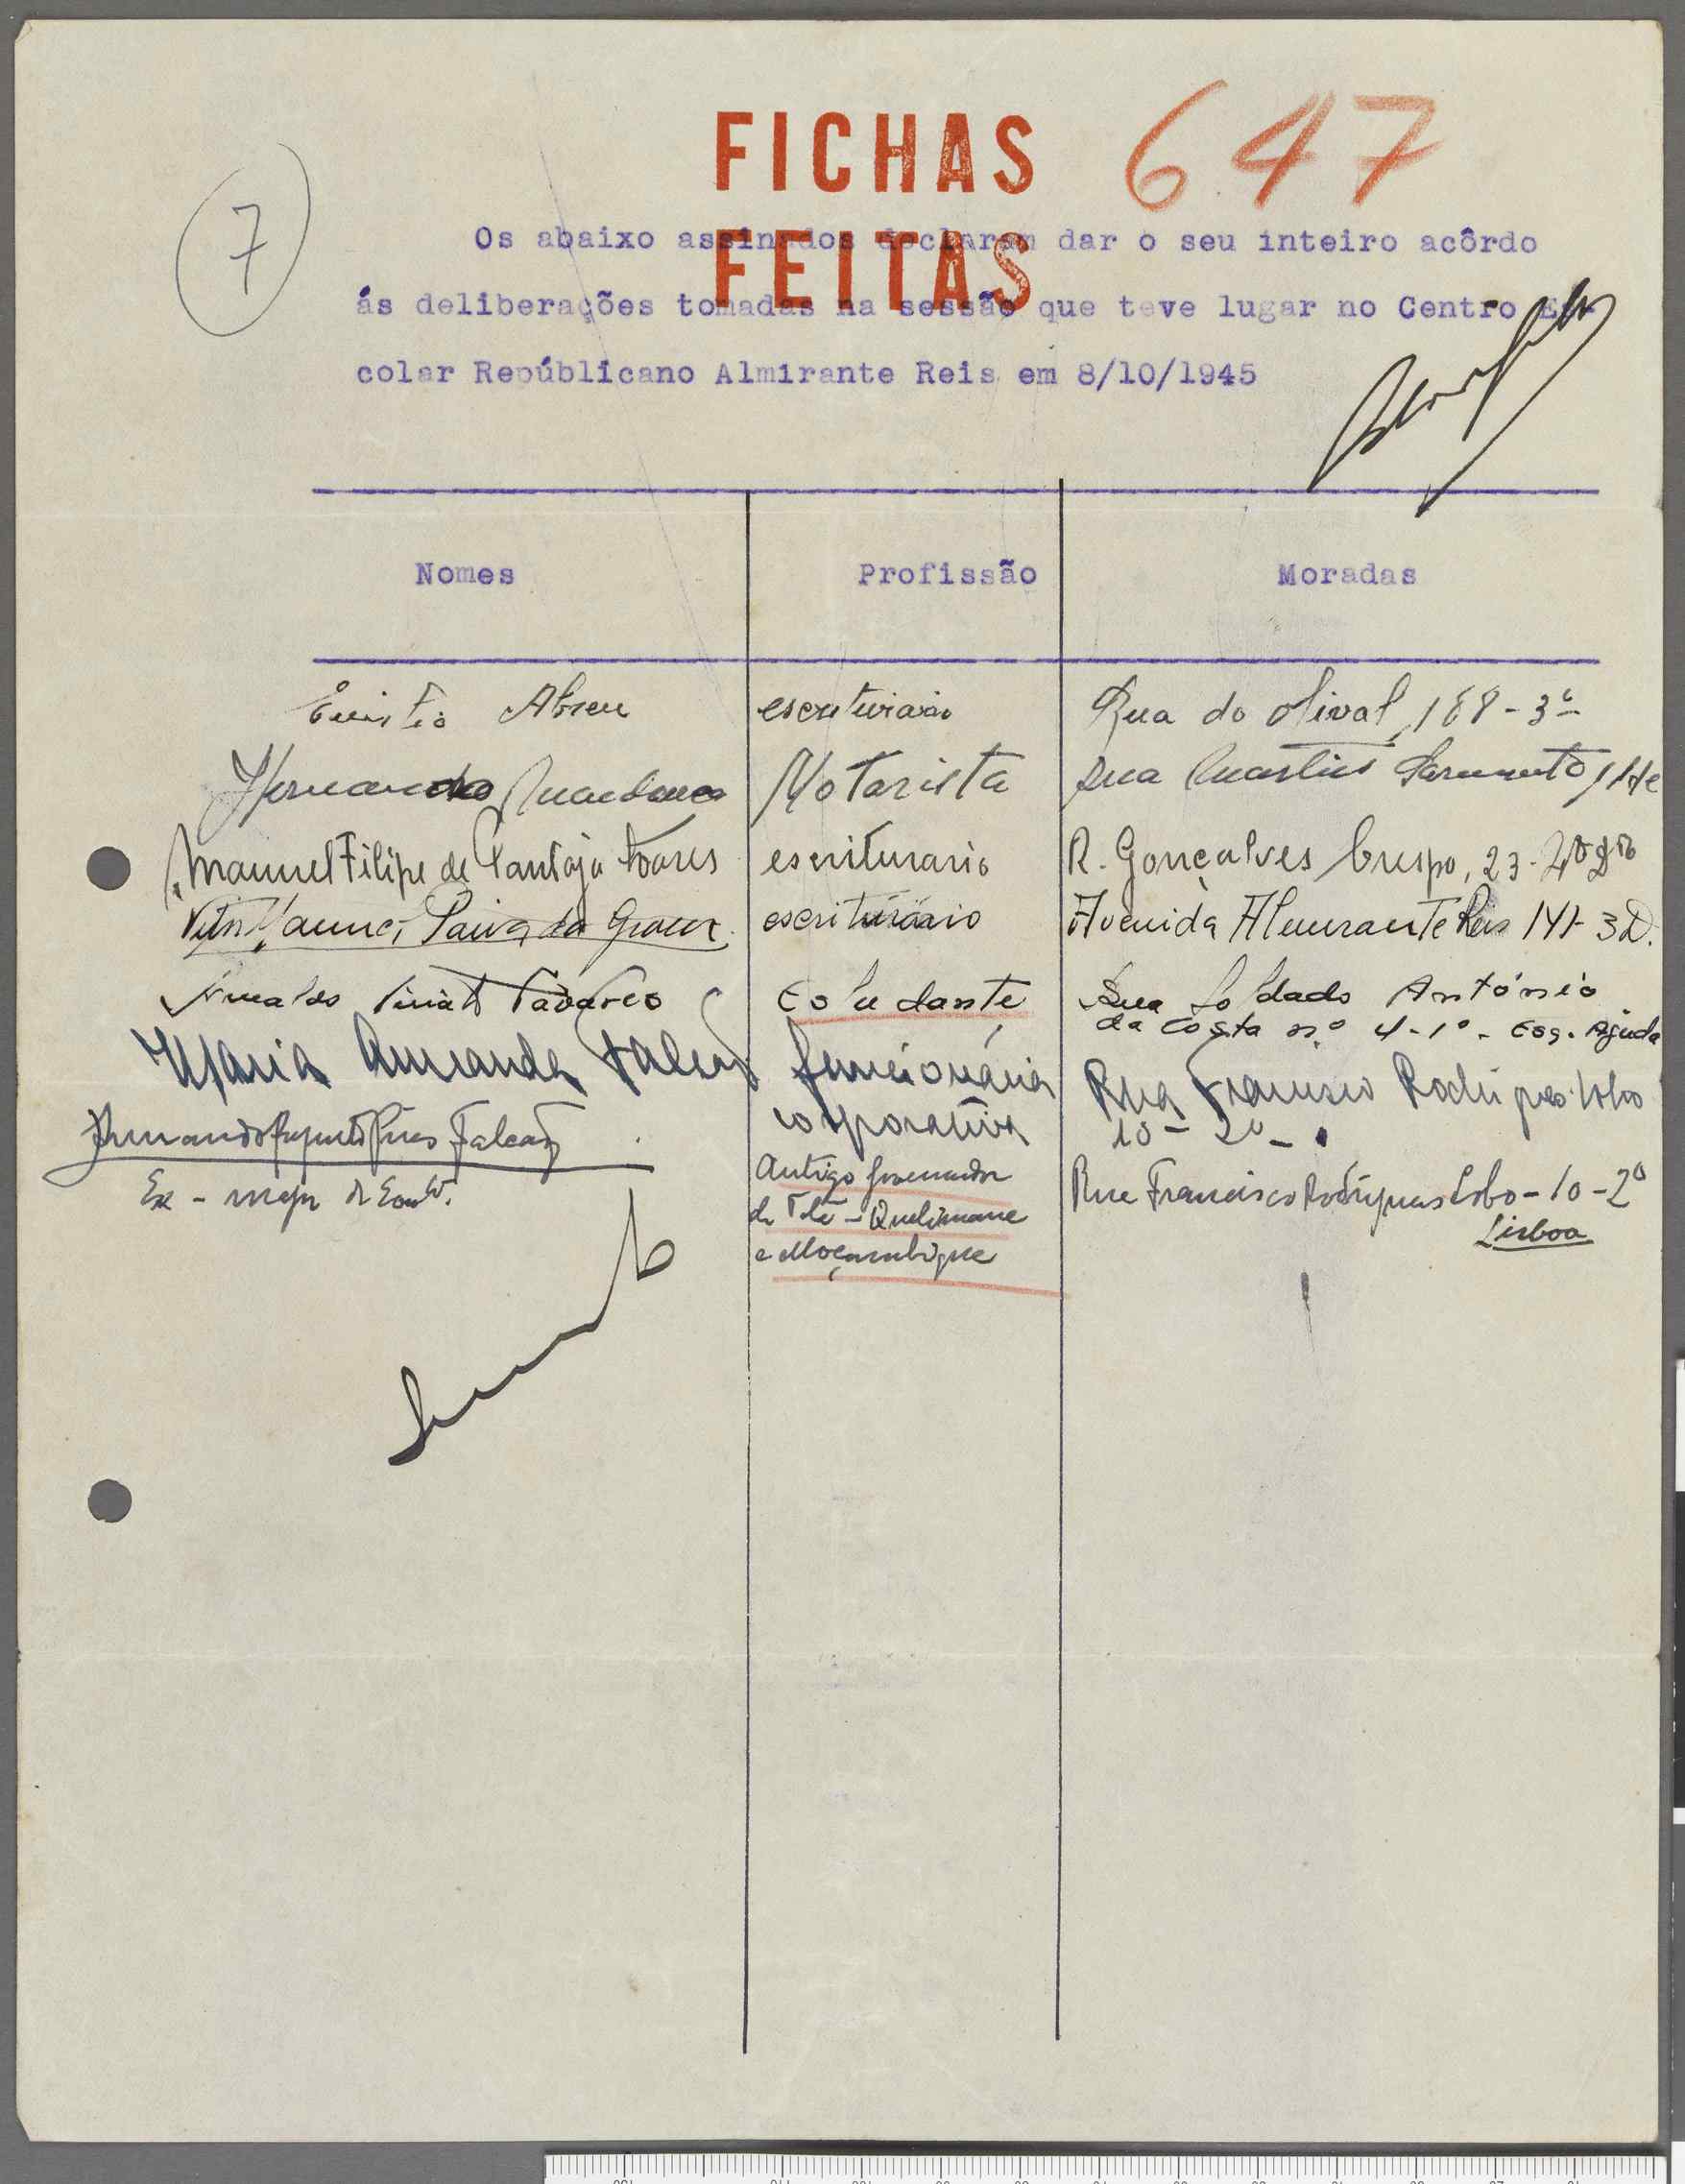 FICHAS
FEITAS
647
7
Os abaixo assinados declaram dar o seu inteiro acôrdo
ás deliberações tomadas na sessão que teve lugar no Centro Es-
colar Repúblicano Almirante Reis em 8/10/1945
Nomes Profissão Moradas
Abreu escriturário Rua do Olival, 188-3º
Motorista Rua Martins Sarmento
Manuel Filipe de Pantoja Soares escriturario R. Gonçalves Crespo, 23-4º Dto
Paiva da escriturário Avenida Almirante Reis 141-3D.
Tavares Estudante Rua Soldado António
da Costa nº 4-1º - Esq. Ajuda
Maria Amanda Falcão funcionária Rua Francisco Rodrigues Lobo
corporativa 10-2º-
Armando Augusto Pires Falcão Antigo governador Rua Francisco Rodrigues Lobo-10-2º
Ex-major de de Tete-Quelimane Lisboa
e Moçambique